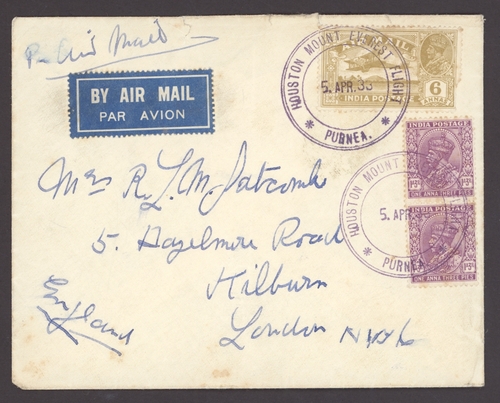 Per Air Mail
BY AIR MAIL
PAR AVION
HOUSTON MOUNT EVEREST FLIGHT
5. APR. 33
* PURNEA. *
AIR MAIL
INDIA POSTAGE
6
ANNAS
INDIA POSTAGE
ONE ANNA THREE PIES
INDIA POSTAGE
ONE ANNA THREE PIES
HOUSTON MOUNT
5. APR
* PURNEA
Mrs R. L. M. Jatcombe
5. Hazelmere Road
Kilburn
London NW6
England